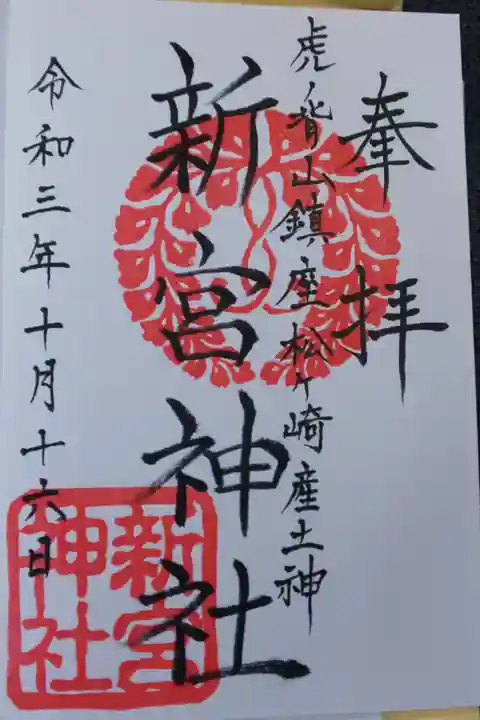 奉拝
虎ノ背山鎮座松ヶ崎産土神
新宮神社
令和三年十月十六日
新宮
神社